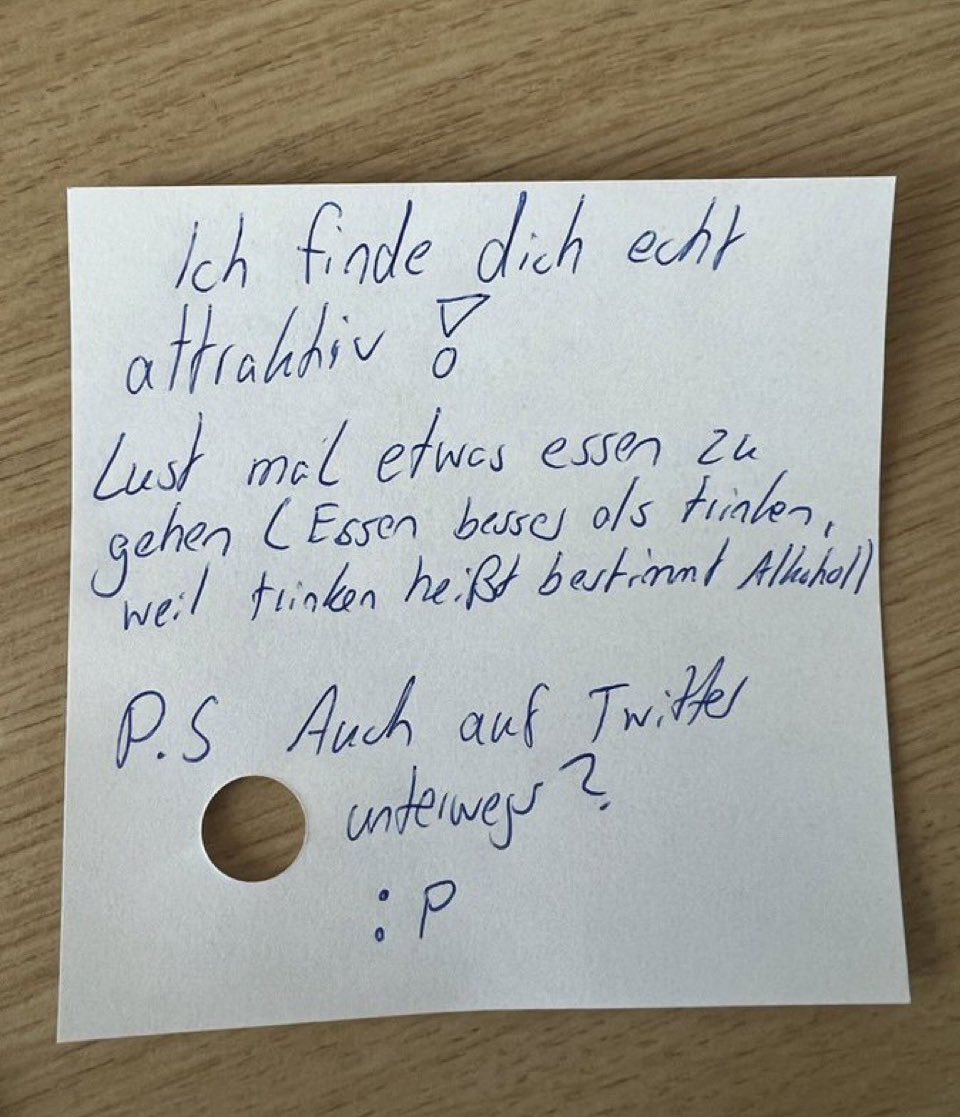 Ich finde dich echt
attraktiv !
Lust mal etwas essen zu
gehen (Essen besser als trinken,
weil trinken heißt bestimmt Alkohol)
P.S Auch auf Twitter
unterwegs?
:P